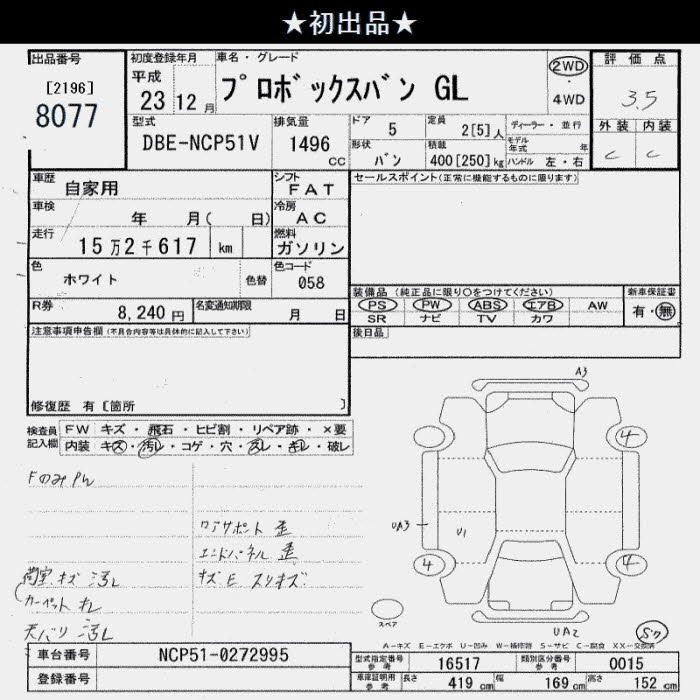 ★初出品★
出品番号
[2196]
8077
初度登録年月
平成
23 12 月
車名・グレード
プロボックスバン GL
2WD
・
4WD
評価点
3.5
外装 内装
C C
型式
DBE-NCP51V
排気量
1496
CC
ドア
5
定員
2[5]人
ディーラー・並行
形状
バン
積載
400[250]kg
モデル年式 年
ハンドル 左・右
車歴
自家用
シフト
FAT
車検
年 月( 日)
冷房
AC
走行
15万2千617 km
燃料
ガソリン
色
ホワイト
色替
色コード
058
R券
8,240 円
名変通知期限
月 日
セールスポイント(正常に機能するものに限ります)
装備品 (純正品に限り○をつけてください)
新車保証書
PS PW ABS エアB AW
有・無
SR ナビ TV カワ
後日品
注意事項申告欄(不具合内容等は具体的に記入して下さい)
修復歴 有〔箇所 〕
検査員記入欄
FW キズ・飛石・ヒビ割・リペア跡・×要
内装 キズ・汚レ・コゲ・穴・スレ・キレ・破レ
FのみPW
コアサポート 歪
エンドパネル 歪
荷室 キズ 汚レ
キズ E スリキズ
カーペット キレ
天バリ 汚レ
A3
4
UA3
U1
4
4
スペア
UA2
Sク
A-キズ E-エクボ U-凹み W-補修跡 S-サビ C-腐食 XX-交換済
車台番号
NCP51-0272995
登録番号
型式指定番号参考
16517
類別区分番号参考
0015
車庫証明用参考
長さ 419 cm
幅 169 cm
高さ 152 cm